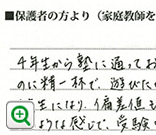 ■保護者の方より（家庭教師を
4年生から塾に通ってお
のに精一杯で、遊びた
生になり、偏差値も
ような感じで、受験